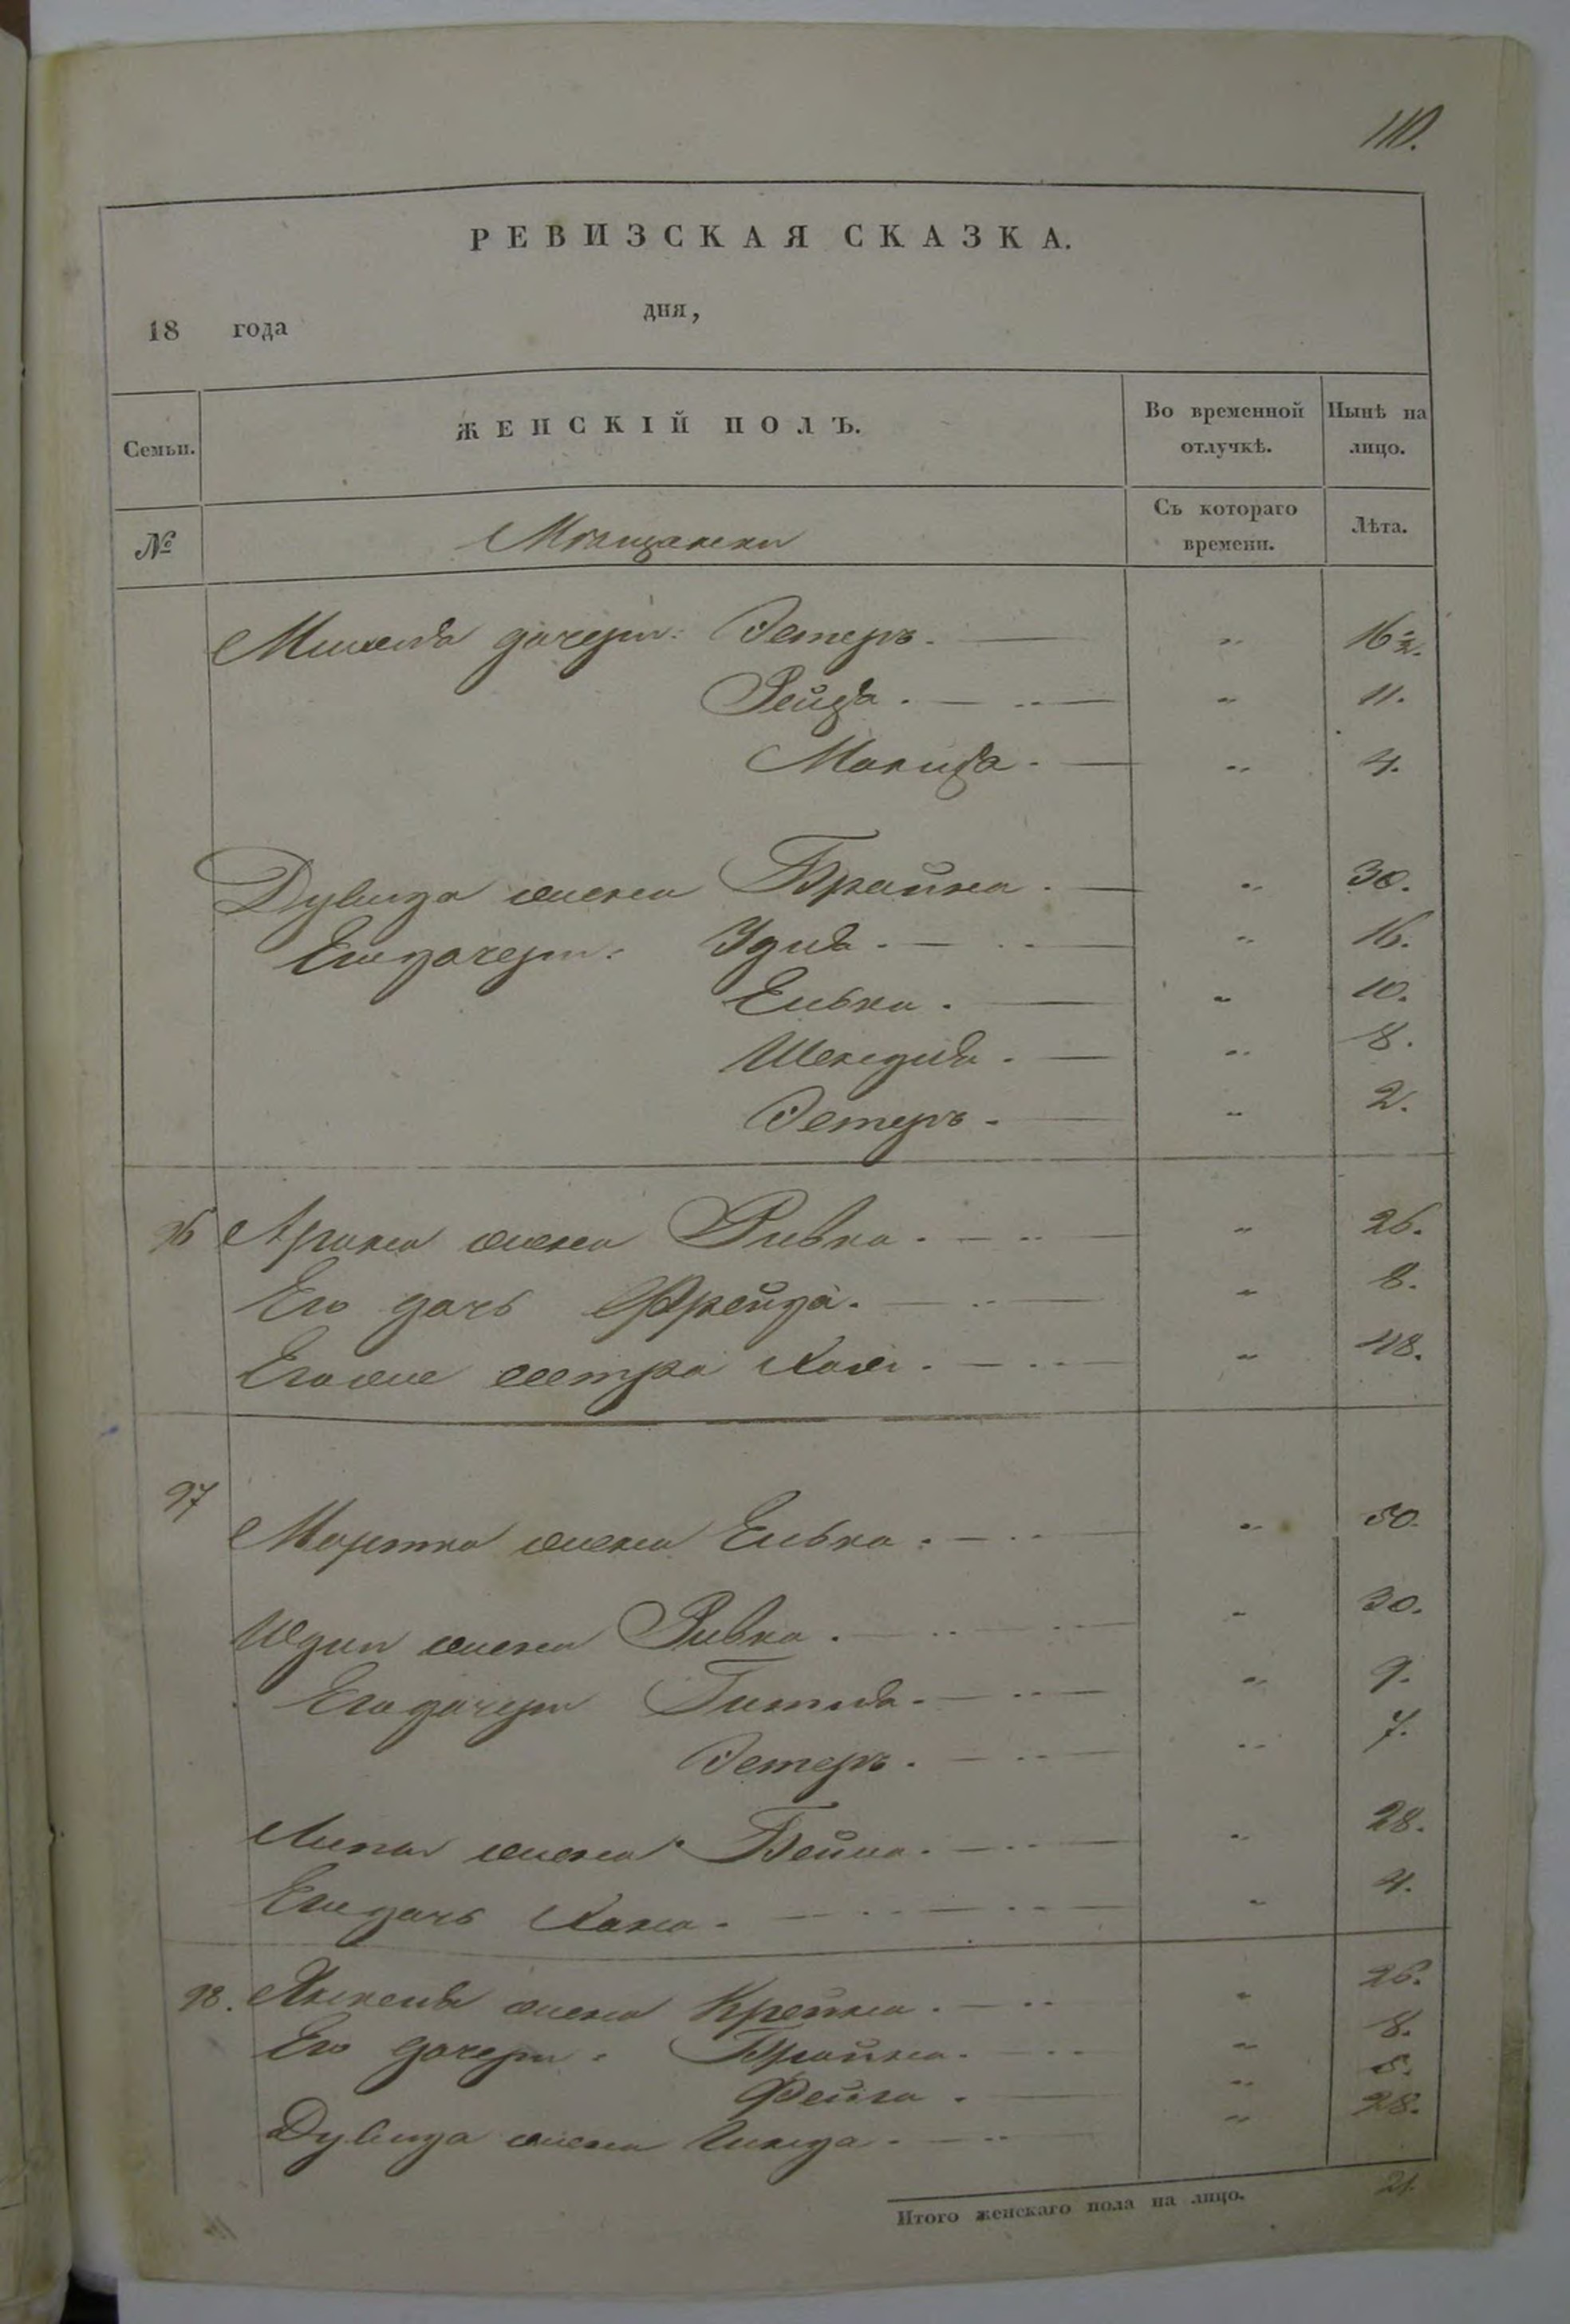 110.
РЕВИЗСКАЯ СКАЗКА.
18 года дня,
Семьи. ЖЕНСКІЙ ПОЛЪ. Во временной отлучкѣ. Нынѣ на лицо.
№ Мѣщански Съ котораго времени. Лѣта.
дочери: Эстеръ. — „ 16½.
Рейзя. — „ 11.
— „ 4.
Дувида жена Брайна. — „ 30.
Его дочери: Удля. — „ 16.
Елька. — „ 10.
Шендля. — „ 8.
Эстеръ. — „ 2.
96 Арона жена Ривка. — „ 26.
Его дочь Фрейда. — „ 8.
Его же сестра Хая. — „ 48.
97
Мортка жена Елька. — „ 50.
жена Ривка. — „ 30.
Его дочери Гитля. — „ 9.
Эстеръ. — „ 7.
Липы жена Бейла. — „ 28.
Его дочь Хана. — „ 4.
98. Янкеля жена Крейна. — „ 26.
Его дочери: Брайна. — „ 8.
Фейга. — „ 5.
Дувида жена Гинда. — „ 28.
Итого женскаго пола на лицо. 21.